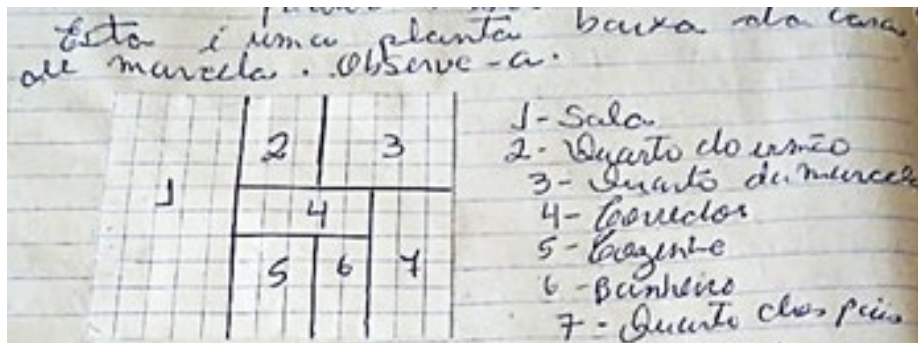 Esta é uma planta baixa da casa
de marcela. Observe-a.
1 2 3 4 5 6 7
1- Sala
2- Quarto do irmão
3- Quarto da marcela
4- Corredor
5- Cozinha
6- Banheiro
7- Quarto dos pais